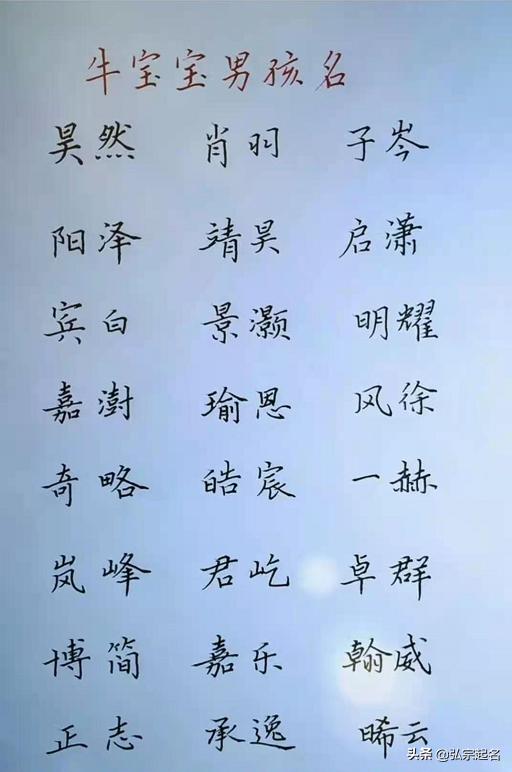 牛宝宝男孩名
昊然 肖羽 子岑
阳泽 靖昊 启潇
宾白 景灏 明耀
嘉澍 瑜恩 风徐
奇略 皓宸 一赫
岚峰 君屹 卓群
博简 嘉乐 翰威
正志 承逸 晞云
头条 @弘宗起名